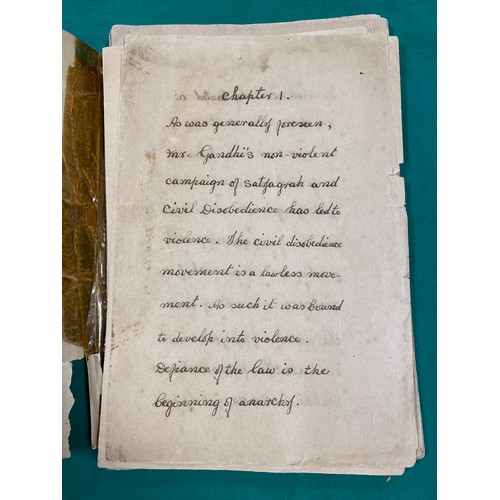 Chapter 1.
As was generally foreseen,
Mr. Gandhi's non-violent
campaign of satyagrah and
Civil Disobedience has led to
violence. The civil disobedience
movement is a lawless move-
ment. As such it was bound
to develop into violence.
Defiance of the law is the
beginning of anarchy.